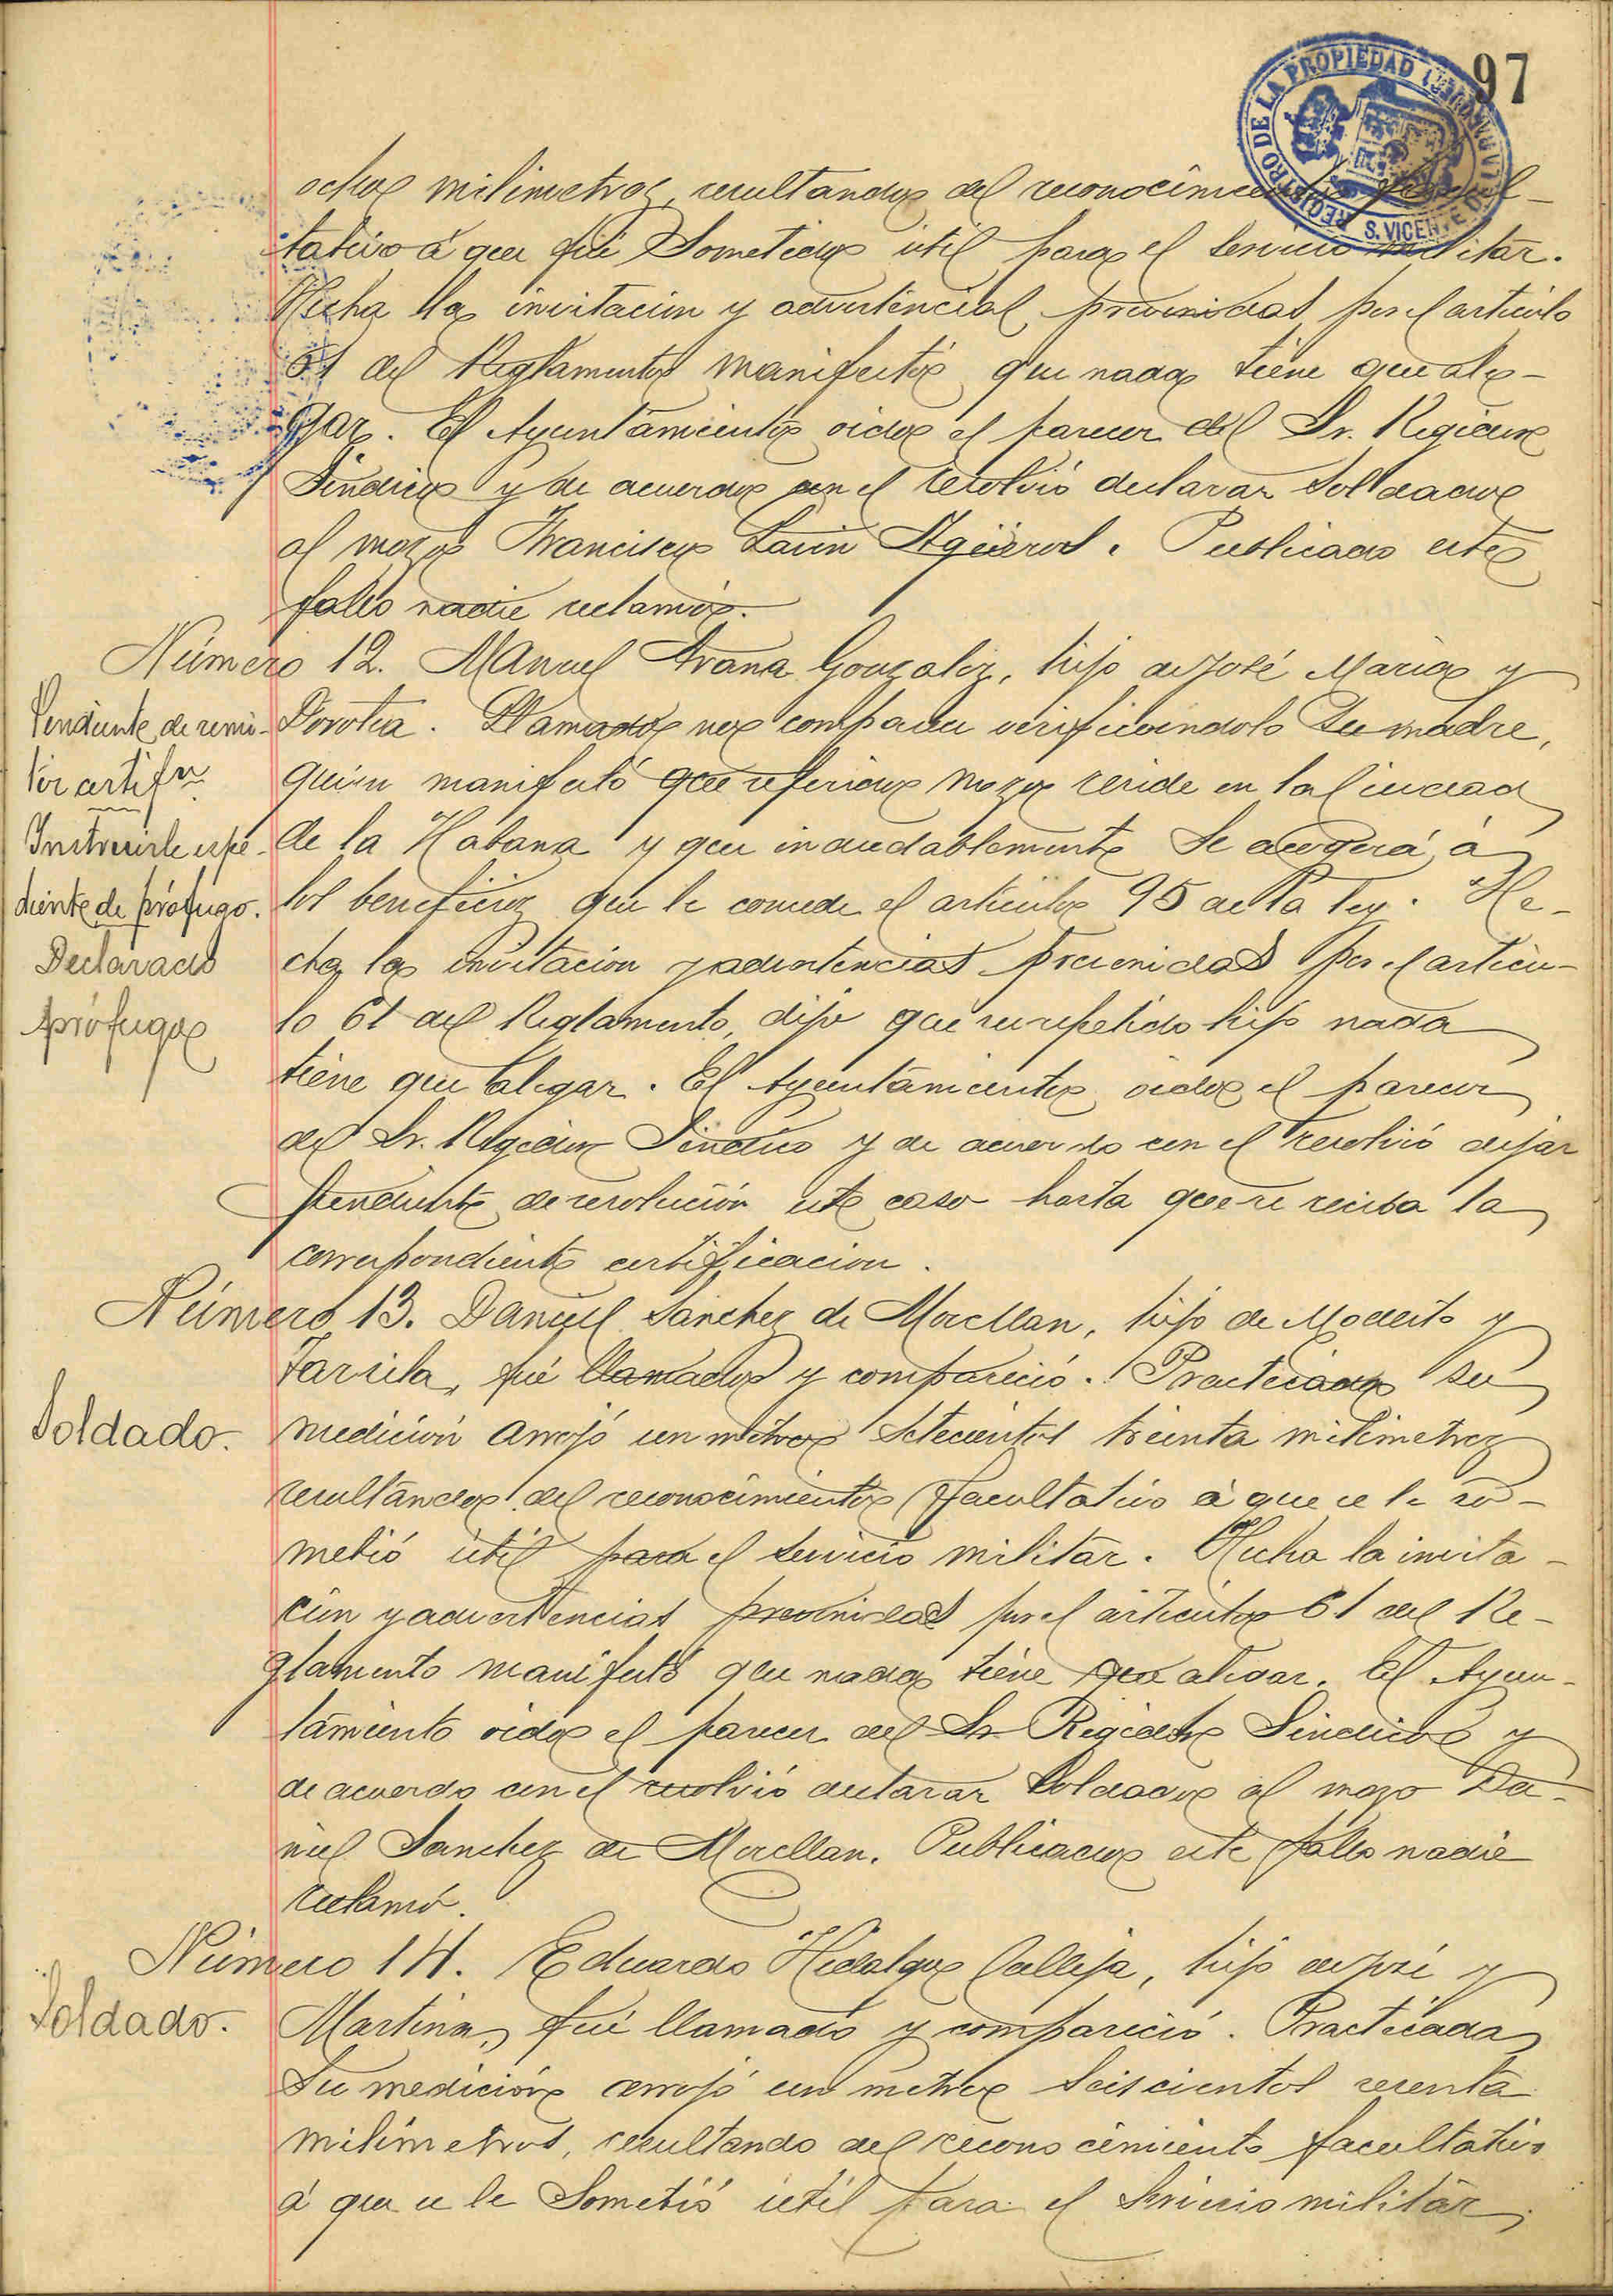 97
REGISTRO DE LA PROPIEDAD
S. VICENTE DE LA BARQUERA
ocho milimetros, resultando del reconocimiento facul-
tativo á que fué sometido útil para el servicio militar.
Hecha la invitacion y advertencias prevenidas por el articulo
61 del Reglamento manifestó que nada tiene que ale-
gar. El Ayuntamiento oido el parecer del Sr. Regidor
Síndico y de acuerdo con el resolvió declarar soldado
al mozo Francisco Lavin Agüeros. Publicado este
fallo nadie reclamó.
Número 12. Manuel Arana Gonzalez, hijo de José Maria y
Dorotea. Llamado no comparece verificándolo su madre,
quien manifestó que referido mozo reside en la ciudad
de la Habana y que indudablemente se acogerá á
los beneficios que le concede el articulo 95 de la ley. He-
cha la invitacion y advertencias prevenidas por el articu-
lo 61 del Reglamento, dijo que su repetido hijo nada
tiene que alegar. El Ayuntamiento oido el parecer
del Sr. Regidor Sindico y de acuerdo con el resolvió dejar
pendiente de resolución este caso hasta que se reciba la
correspondiente certificacion.
Pendiente de remi-
tir certifon
Instruirle espe-
diente de prófugo.
Declarado
prófugo
Número 13. Daniel Sanchez de Morellan, hijo de Modesto y
Tarsila, fué llamado y compareció. Practicada su
Soldado.
medición arrojó un metro setecientos treinta milimetros
resultando del reconocimiento facultativo á que se le so-
metió útil para el servicio militar. Hecha la invita-
cion y advertencias prevenidas por el articulo 61 del Re-
glamento manifestó que nada tiene que alegar. El Ayun-
tamiento oido el parecer del Sr. Regidor Sindico y
de acuerdo con el resolvió declarar soldado al mozo Da-
niel Sanchez de Morellan. Publicado este fallo nadie
reclamó.
Número 14. Eduardo Hidalgo Calleja, hijo de José y
Soldado.
Martina, fué llamado y compareció. Practicada
su medición arrojó un metro seiscientos sesenta
milimetros, resultando del reconocimiento facultativo
á que se le sometió útil para el servicio militar.